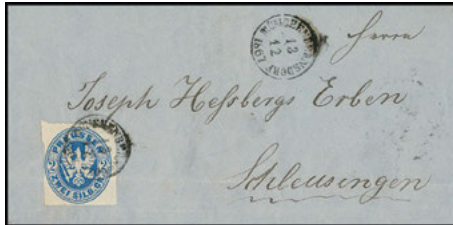 Herrn
Joseph Hessbergs Erben
Schleusingen
13
12
PREUSSEN
2
2
ZWEI SILB. GR.